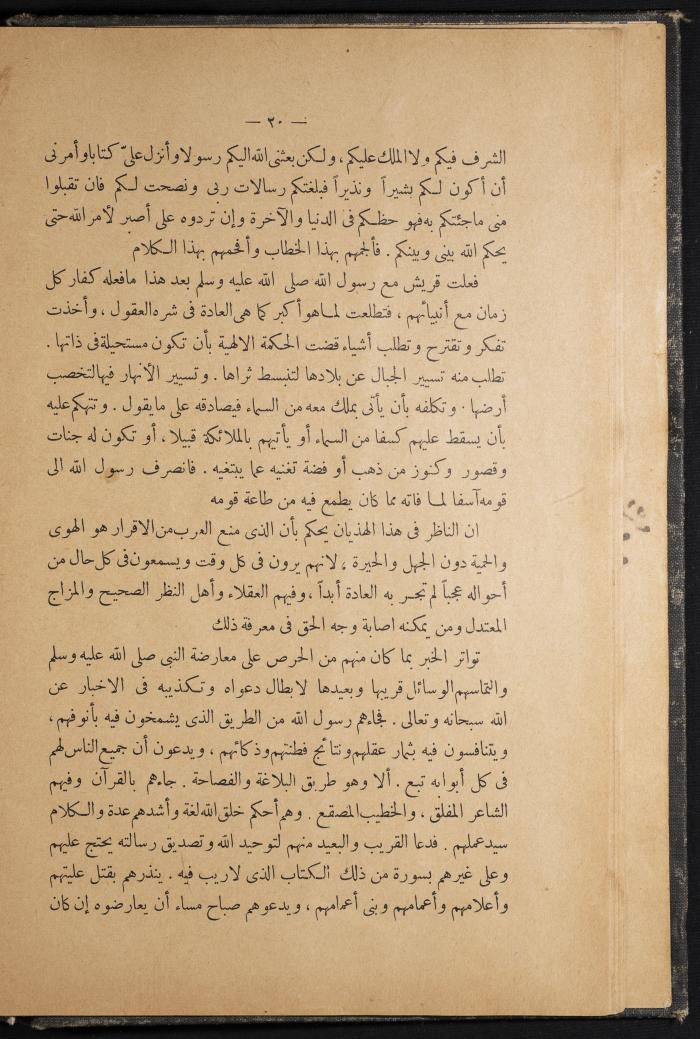 — ٢٠ —
الشرف فيكم ولا الملك عليكم ، ولكن بعثنى الله اليكم رسولا وأنزل علىّ كتابا وأمرنى
أن أكون لكم بشيراً ونذيراً فبلغتكم رسالات ربى ونصحت لكم فان تقبلوا
منى ماجئتكم به فهو حظكم فى الدنيا والآخرة وإن تردوه على أصبر لأمر الله حتى
يحكم الله بينى وبينكم . فألجمهم بهذا الخطاب وأفحمهم بهذا الكلام
فعلت قريش مع رسول الله صلى الله عليه وسلم بعد هذا مافعله كفار كل
زمان مع أنبيائهم ، فتطلعت لما هو أكبر كما هى العادة فى شره العقول ، وأخذت
تفكر وتقترح وتطلب أشياء قضت الحكمة الالهية بأن تكون مستحيلة فى ذاتها .
تطلب منه تسيير الجبال عن بلادها لتنبسط ثراها . وتسيير الأنهار فيها لتخصب
أرضها . وتكلفه بأن يأتى بملك معه من السماء فيصادقه على مايقول . وتتهكم عليه
بأن يسقط عليهم كسفا من السماء أو يأتيهم بالملائكة قبيلا ، أو تكون له جنات
وقصور وكنوز من ذهب أو فضة تغنيه عما يبتغيه . فانصرف رسول الله الى
قومه آسفا لما فاته مما كان يطمع فيه من طاعة قومه
ان الناظر فى هذا الهذيان يحكم بأن الذى منع العرب من الاقرار هو الهوى
والحمية دون الجهل والحيرة ، لانهم يرون فى كل وقت ويسمعون فى كل حال من
أحواله عجباً لم تجر به العادة أبداً ، وفيهم العقلاء وأهل النظر الصحيح والمزاج
المعتدل ومن يمكنه اصابة وجه الحق فى معرفة ذلك
تواتر الخبر بما كان منهم من الحرص على معارضة النبى صلى الله عليه وسلم
والتماسهم الوسائل قريبها وبعيدها لابطال دعواه وتكذيبه فى الاخبار عن
الله سبحانه وتعالى . فجاءهم رسول الله من الطريق الذى يشمخون فيه بأنوفهم ،
ويتنافسون فيه بثمار عقلهم ونتائج فطنتهم وذكائهم ، ويدعون أن جميع الناس لهم
فى كل أبوابه تبع . ألا وهو طريق البلاغة والفصاحة . جاءهم بالقرآن وفيهم
الشاعر المفلق ، والخطيب المصقع . وهم أحكم خلق الله لغة وأشدهم عدة والكلام
سيد عملهم . فدعا القريب والبعيد منهم لتوحيد الله وتصديق رسالته يحتج عليهم
وعلى غيرهم بسورة من ذلك الكتاب الذى لاريب فيه . ينذرهم بقتل عليتهم
وأعلامهم وأعمامهم وبنى أعمامهم ، ويدعوهم صباح مساء أن يعارضوه إن كان